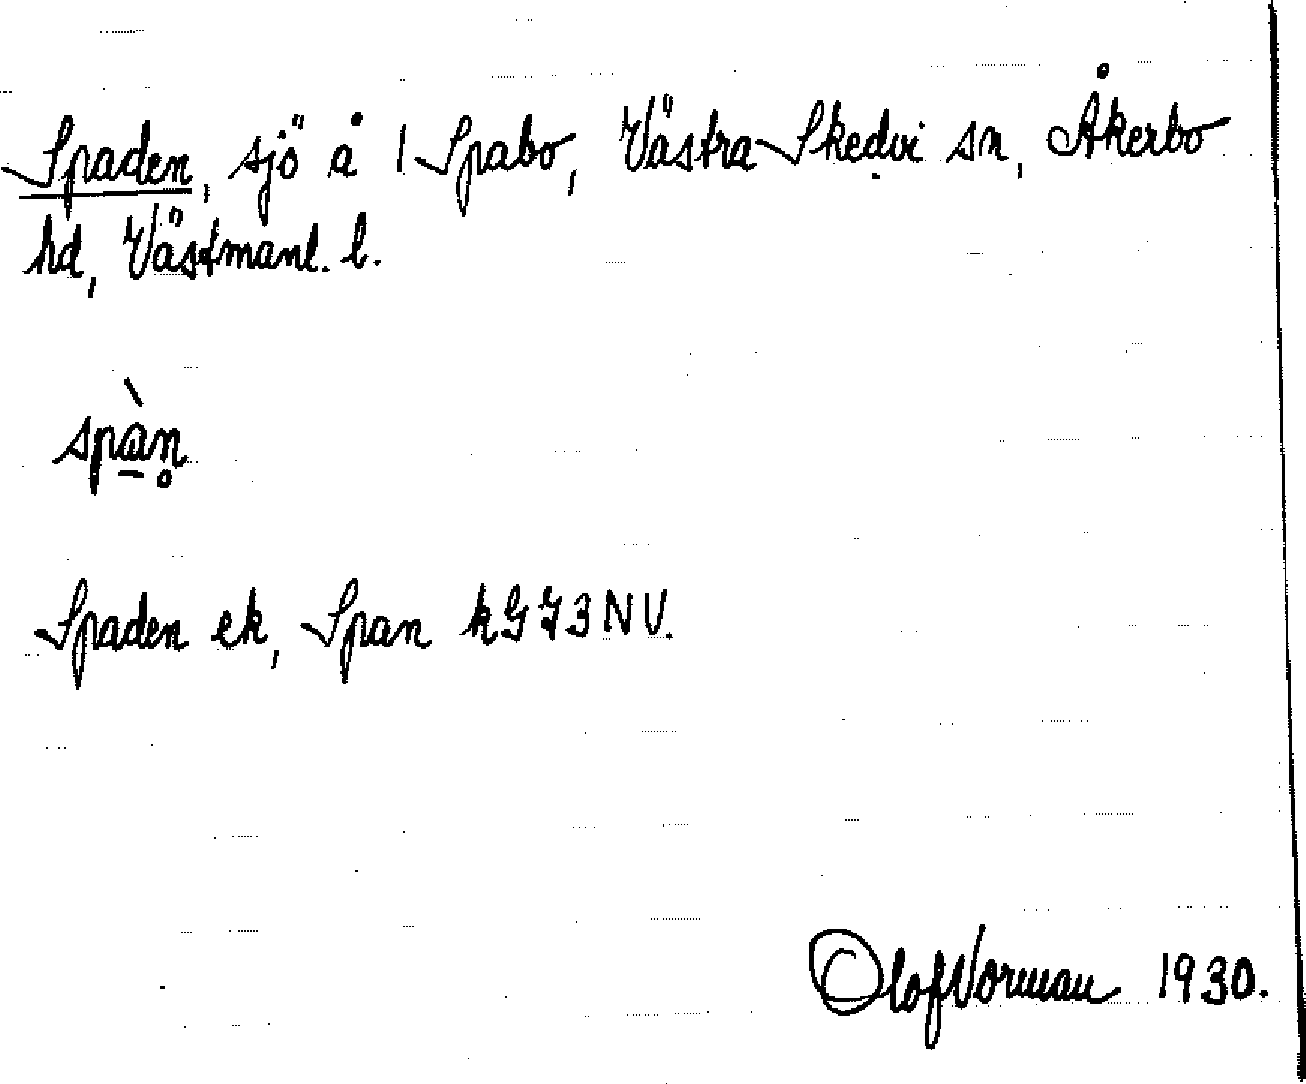 Spaden, sjö å 1 Spabo, Västra Skedvi sn, Åkerbo
hd, Västmanl. l.
spàn̥
Spaden ek, Span kGJ3NV.
Olof Norman 1930.